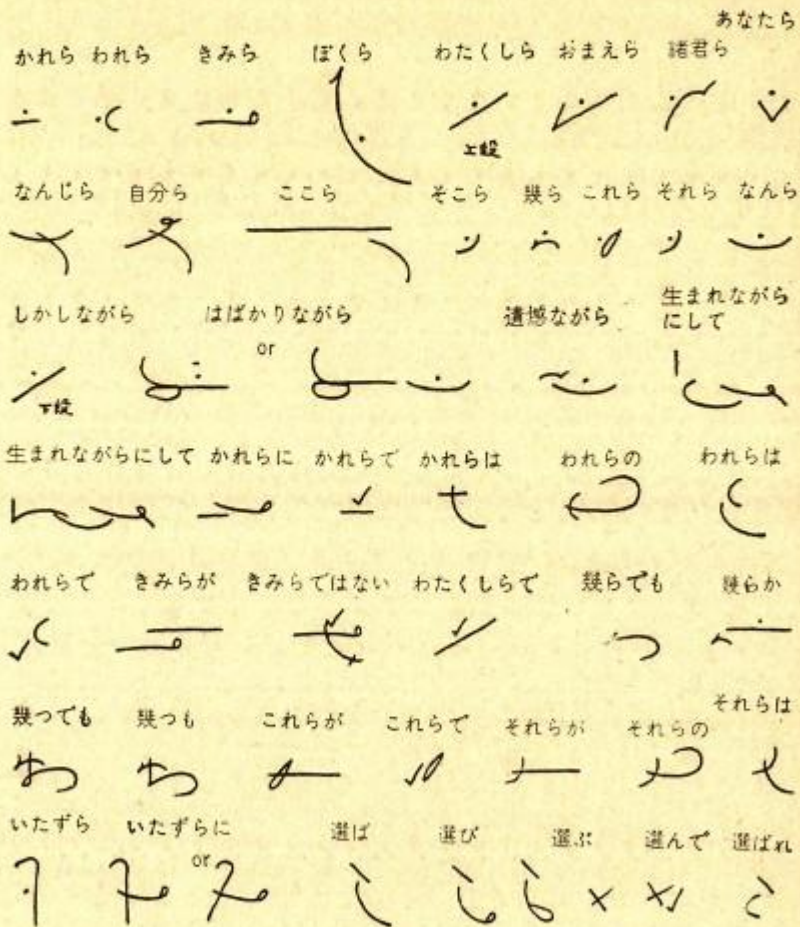 あなたら
かれら われら きみら ぼくら わたくしら おまえら 諸君ら
上段
なんじら 自分ら ここら そこら 幾ら これら それら なんら
しかしながら はばかりながら 遺憾ながら 生まれながら
にして
or
下段
生まれながらにして かれらに かれらで かれらは われらの われらは
われらで きみらが きみらではない わたくしらで 幾らでも 幾らか
それらは
幾つでも 幾つも これらが これらで それらが それらの
いたずら いたずらに 選ば 選び 選ぶ 選んで 選ばれ
or